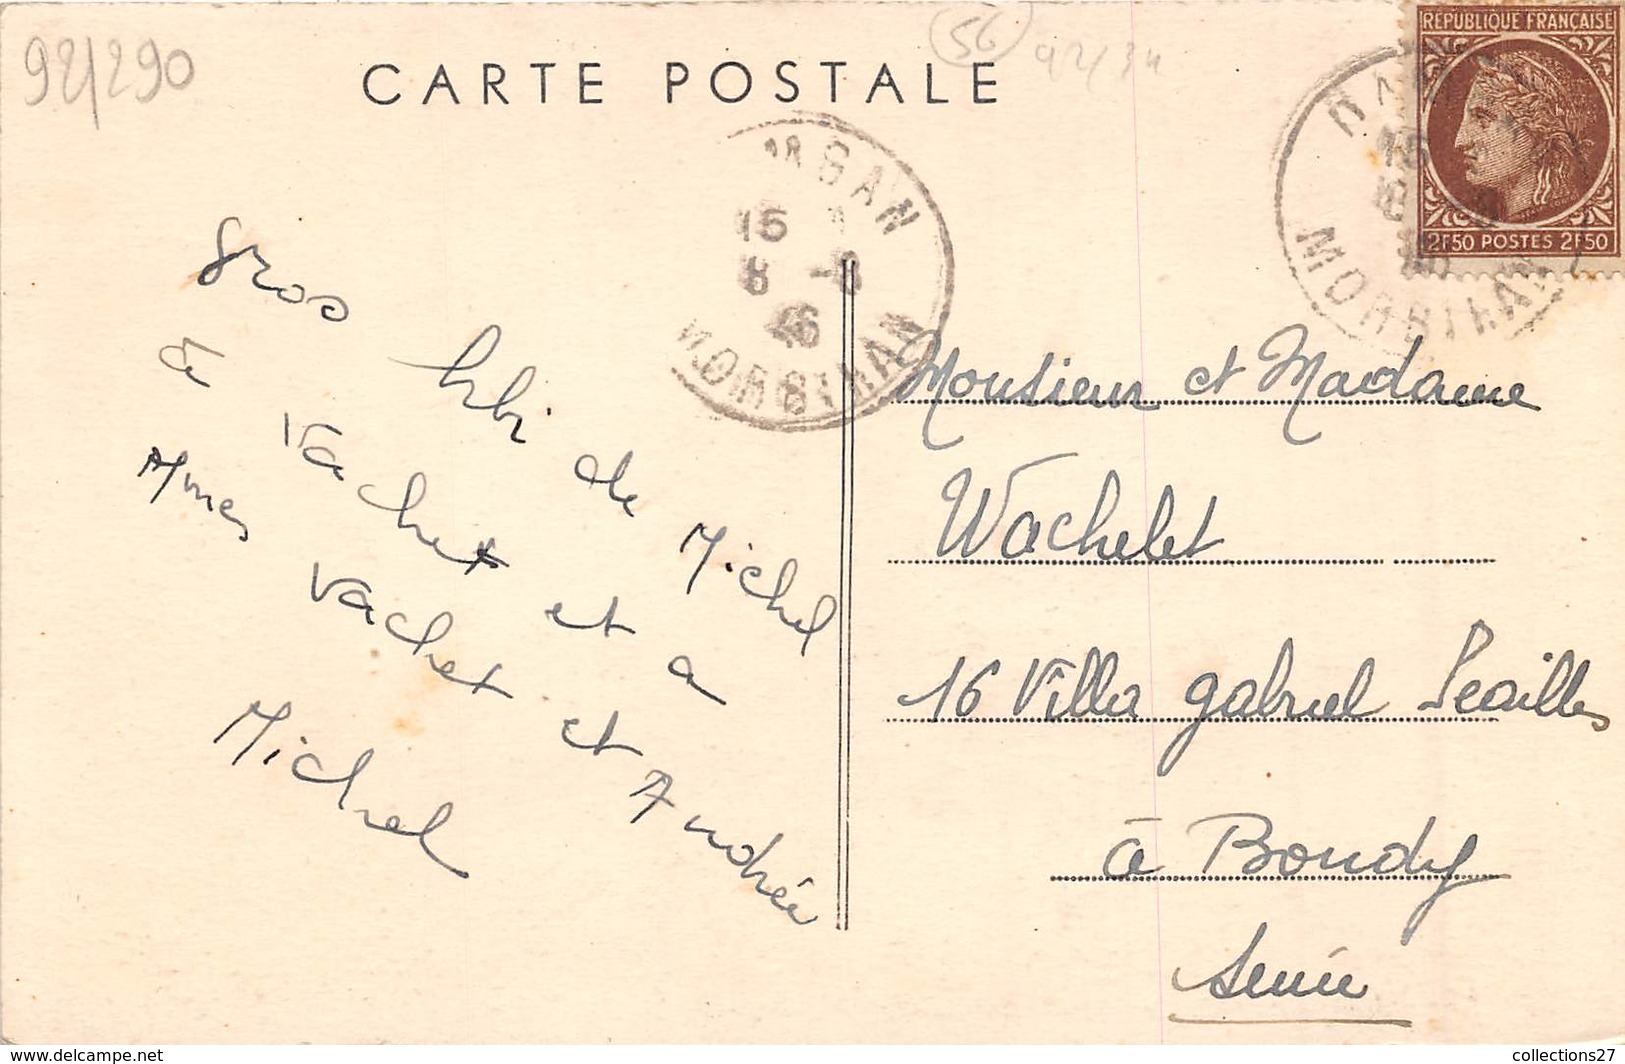 92/290
56
92/34
CARTE POSTALE
RÉPUBLIQUE FRANÇAISE
2F50 POSTES 2F50
MORBIHAN
MGAN
15
8 -8
46
MORBIHAN
Gros bbi de Michel
à Vachet et a
Mmes Vachet et Andrée
Michel
Monsieur et Madame
Wachelet
16 Villa gabriel Seailles
à Bondy
Seine
collections27
www.delcampe.net